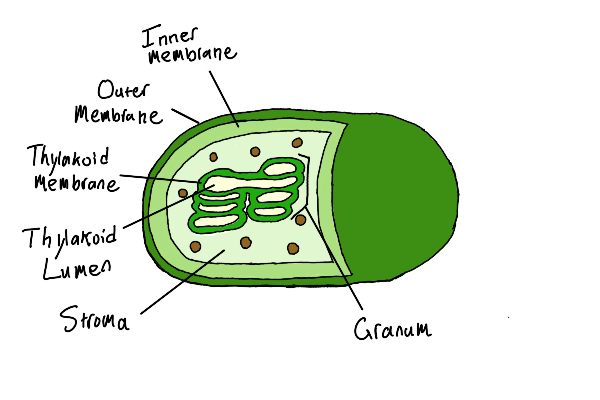 Inner
membrane
Outer
Membrane
Thylakoid
Membrane
Thylakoid
Lumen
Stroma
Granum